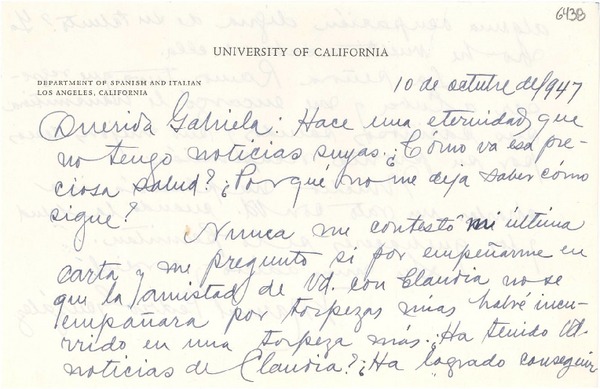 6438
UNIVERSITY OF CALIFORNIA
DEPARTMENT OF SPANISH AND ITALIAN
LOS ANGELES, CALIFORNIA
10 de octubre de 1947
Querida Gabriela: Hace una eternidad que
no tengo noticias suyas. ¿Cómo va esa pre-
ciosa salud? ¿Por qué no me deja saber cómo
sigue?
Nunca me contestó mi última
carta y me pregunto si por empeñarme en
que la amistad de Vd. con Claudia no se
empañara por torpezas mías habré incu-
rrido en una torpeza más. ¿Ha tenido Vd.
noticias de Claudia? ¿Ha logrado conseguir